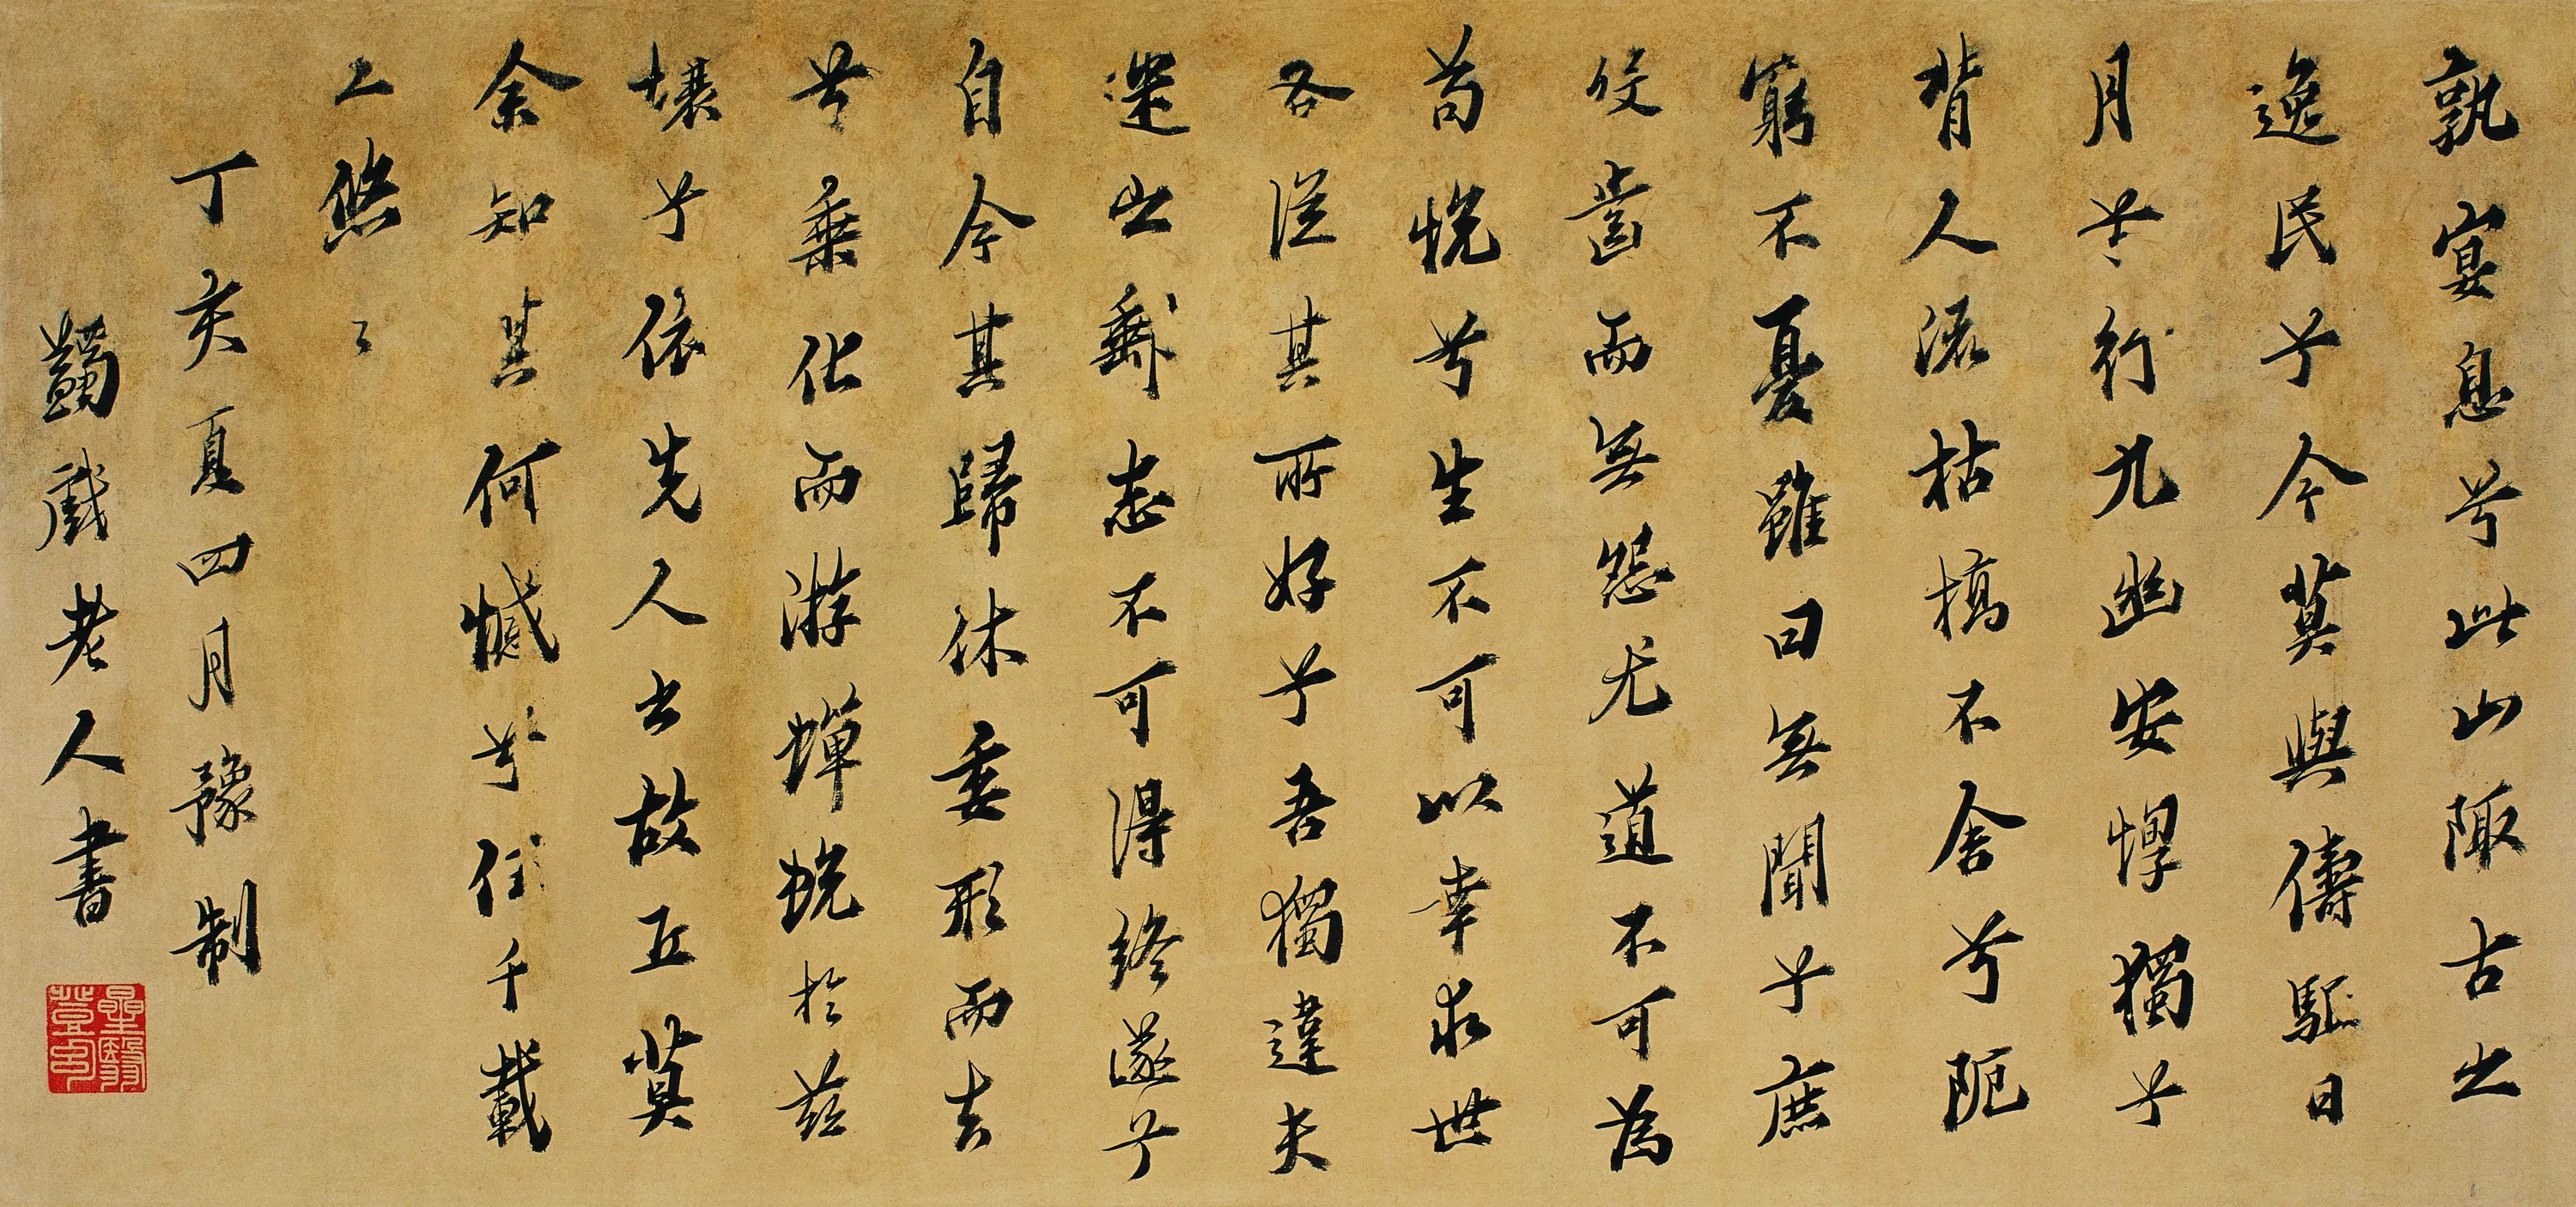 孰宴息兮此山陬古之
逸民兮今莫與儔驅日
月兮行九幽安惸獨兮
背人流枯槁不舍兮阨
窮不憂雖曰無聞兮庶
没齒而無怨尤道不可為
苟悅兮生不可以幸求世
各從其所好兮吾獨違夫
遝之鄰志不可得終遂兮
自今其歸休委形而去
兮乘化而游蟬蛻於茲
壤兮依先人之故丘莫
余知其何慽兮任千載
之悠〻
丁亥夏四月豫制
蠲戲老人書